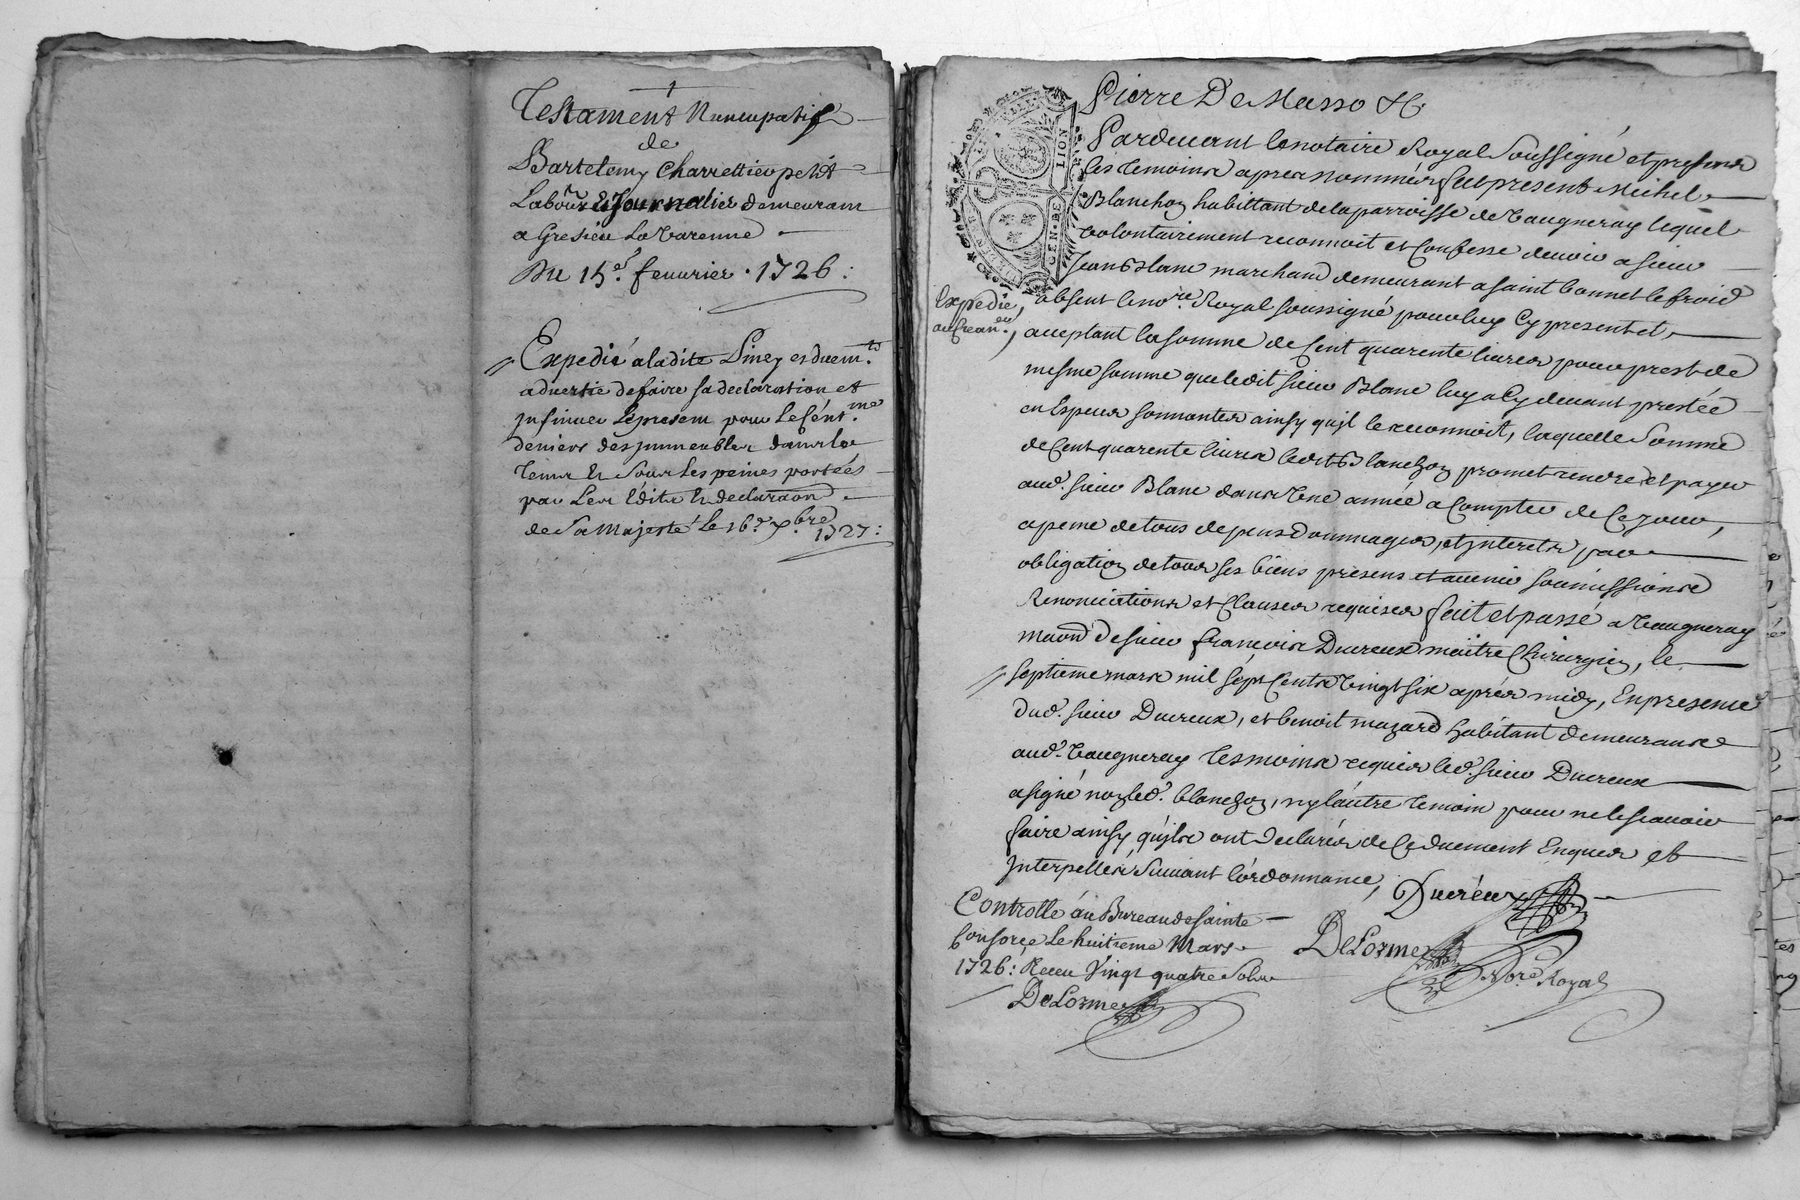 Testament Nuncupatif
de
Bartelemy Charrettier petit
Labour. & Journalier demeurant
a Gresieu La Varenne
Du 15e. feuurier. 1726:
Expedié a ladite Piney et duemt.
aduertie de faire sa declaration et
Insinuer Le present pour le Centme.
deniers des Immeubles dans le
tems & sous Les peines portées
par Les Edits & declaraon
de Sa Majesté Le 16e. xbre 1727:
Pierre De Masso &c
GEN. DE LION
Pardeuant le notaire Royal soussigné et presents
les temoins apres nommés fut present Michel
Blanchon habittant de la parroisse de Vaugneray lequel
volontairement reconnoit et Confesse deuoir a sieur
Jean Blanc marchand demeurant a saint bonnet le froid
absent le nore. Royal soussigné pour luy Cy present et
acceptant la somme de Cent quarente liures pour prest de
mesme somme que ledit sieur Blanc luy a Cy deuant prestée
en Especes sonnantes ainsy qu'jl le reconnoit, laquelle Somme
de Cent quarente liures ledit Blanchon promet rendre et payer
aud. sieur Blanc dans Une année a Compter de Ce jour,
a peine de tous depens Dommages, et Interets par
obligation de tous ses biens presens et auenir soumissions
Renonciations et Clauses requises fait et passé a Vaugneray
maon de sieur françois Ducreux maître Chirurgien, le
septieme mars mil sept Cents Vingt six aprés midy, En presence
dud. sieur Ducreux, et benoit mazard habitant demeurants
aud. Vaugneray tesmoins requis led. sieur Ducreux
a signé non led. blanchon, ny l'autre temoin pour ne le scauoir
faire ainsy qu'jls ont declarés de Ce duement Enquis et
Interpellés Suiuant l'ordonnance,
Expedié
au Crean.er
Ducréux
DeLorme
Nore. Royal
Controllé au Bureau de sainte
Consorçe Le huitieme Mars
1726: Receu Vingt quatre Sols
DeLorme